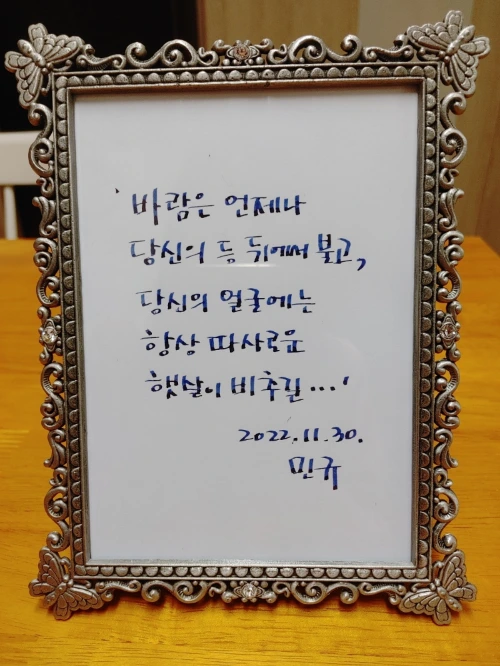 '바람은 언제나
당신의 등 뒤에서 불고,
당신의 얼굴에는
항상 따사로운
햇살이 비추길...'
2022.11.30.
민규